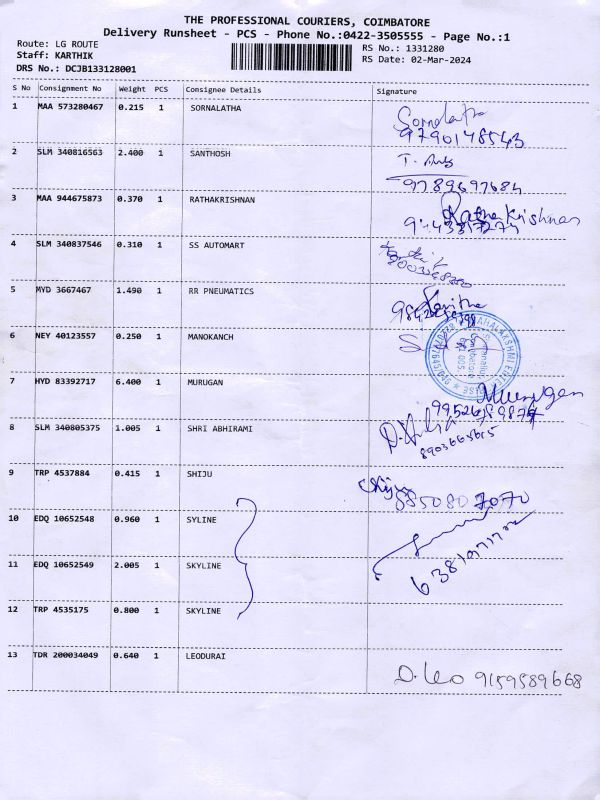 THE PROFESSIONAL COURIERS, COIMBATORE
Delivery Runsheet - PCS - Phone No.:0422-3505555 - Page No.:1
Route: LG ROUTE
RS No.: 1331280
Staff: KARTHIK
RS Date: 02-Mar-2024
DRS No.: DCJB133128001
S No Consignment No Weight PCS Consignee Details Signature
1 MAA 573280467 0.215 1 SORNALATHA Sornalatha
9790148543
2 SLM 340816563 2.400 1 SANTHOSH
9789697684
3 MAA 944675873 0.370 1 RATHAKRISHNAN Rathakrishnan
4 SLM 340837546 0.310 1 SS AUTOMART
5 MYD 3667467 1.490 1 RR PNEUMATICS Kavitha
6 NEY 40123557 0.250 1 MANOKANCH
7 HYD 83392717 6.400 1 MURUGAN Murugan
8 SLM 340805375 1.005 1 SHRI ABHIRAMI
8903665615
9 TRP 4537884 0.415 1 SHIJU Shiju
8850807070
10 EDQ 10652548 0.960 1 SYLINE
11 EDQ 10652549 2.005 1 SKYLINE
12 TRP 4535175 0.800 1 SKYLINE
13 TDR 200034049 0.640 1 LEODURAI
D. Leo 9159589668